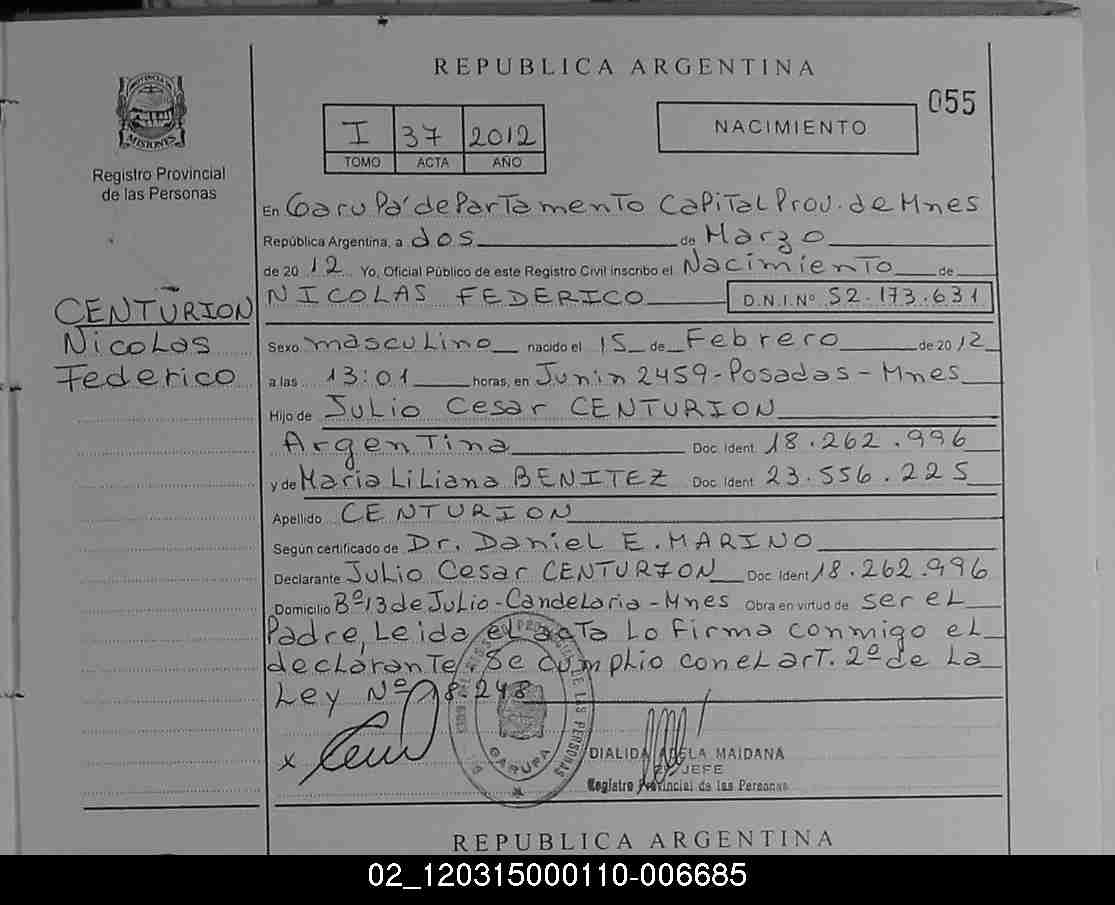 REPUBLICA ARGENTINA
055
I 37 2012
TOMO ACTA AÑO
NACIMIENTO
PROVINCIA DE
MISIONES
Registro Provincial
de las Personas
En Garupá departamento Capital Prov. de Mnes
República Argentina, a dos de Marzo
de 20 12 Yo, Oficial Público de este Registro Civil inscribo el Nacimiento de
NICOLAS FEDERICO D.N.I.Nº 52.173.631
CENTURION
Nicolas
Federico
Sexo masculino nacido el 15 de Febrero de 20 12
a las 13:01 horas, en Junin 2459-Posadas-Mnes
Hijo de Julio Cesar CENTURION
Argentina Doc. Ident. 18.262.996
y de Maria Liliana BENITEZ Doc. Ident. 23.556.225
Apellido CENTURION
Según certificado de Dr. Daniel E. MARINO
Declarante Julio Cesar CENTURION Doc. Ident. 18.262.996
Domicilio Bº 13 de Julio-Candelaria-Mnes Obra en virtud de ser el
Padre, Leida el acta lo firma conmigo el
declarante. Se cumplio con el art. 2º de la
Ley Nº 18.248
DE LAS PERSONAS
GARUPA
DIALIDA ADELA MAIDANA
JEFE
Registro Provincial de las Personas
REPUBLICA ARGENTINA
02_120315000110-006685